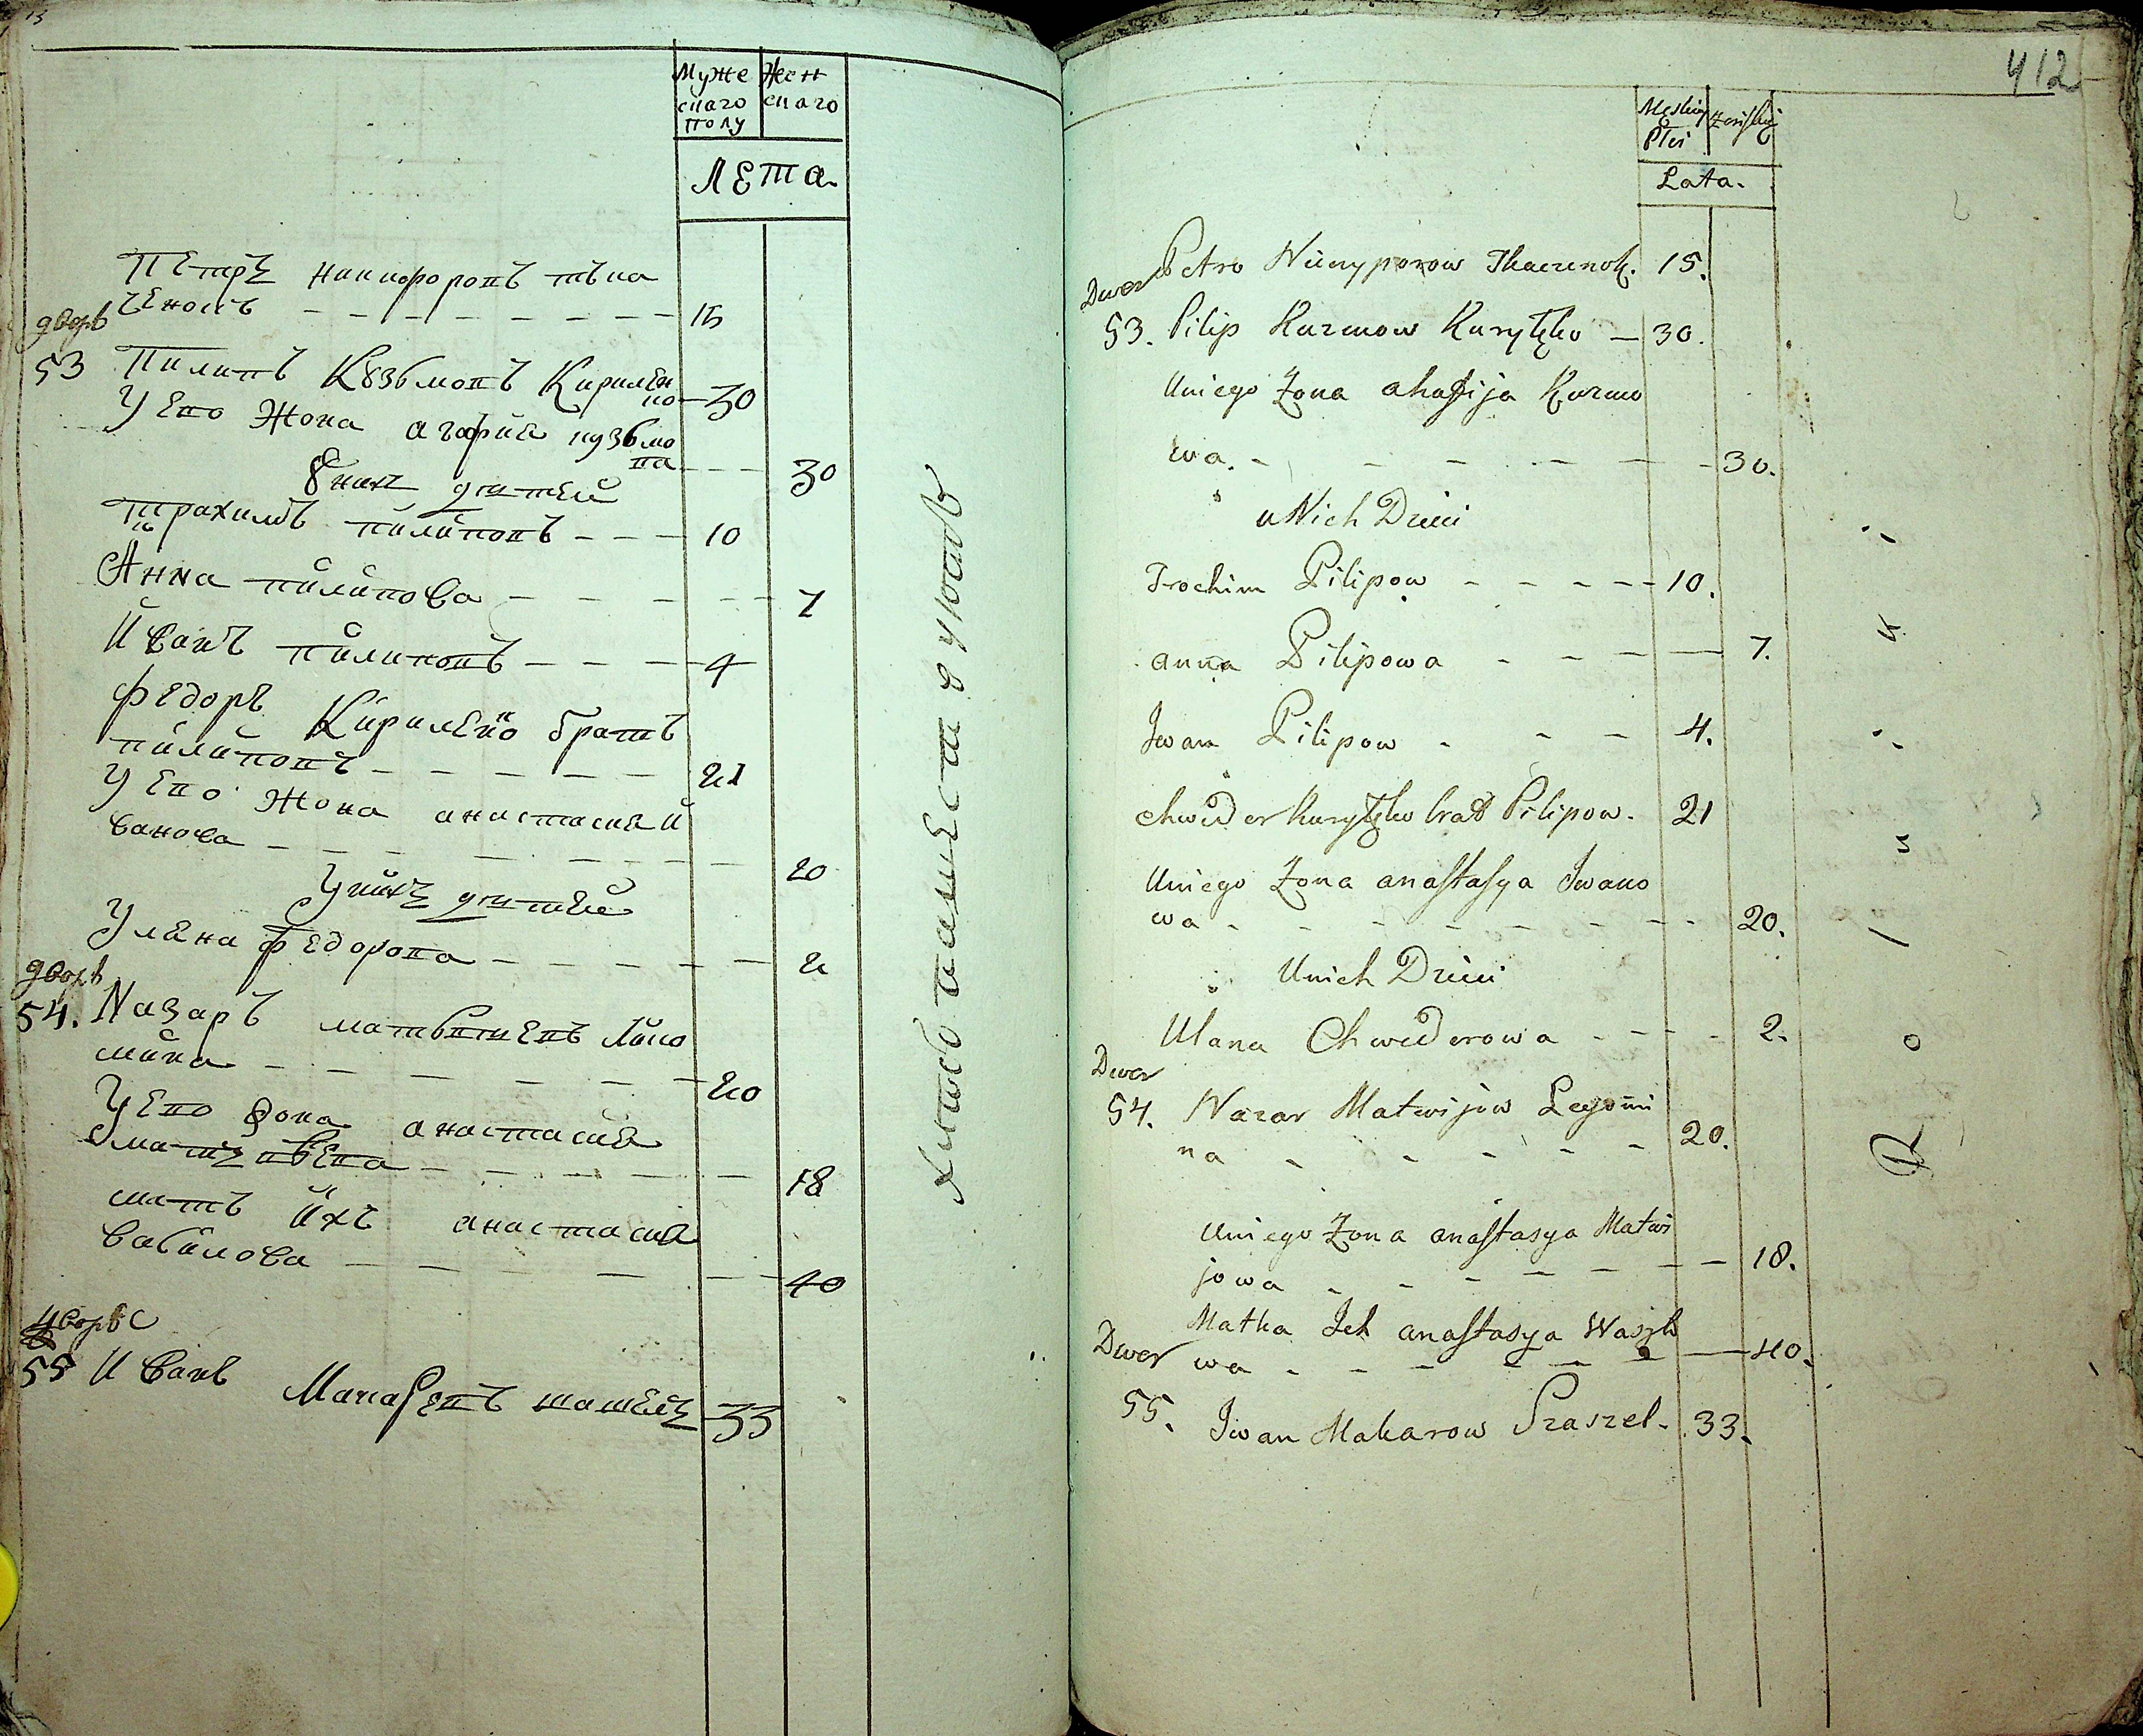 13
Муже Женс
скаго скаго
полу
Лета.
Петръ Никифоровъ тъка
ченокъ — — — — — — — — 15
дворъ
53 Пилипъ Кузьмовъ Кирилен
ко — 30
У Ево Жона агафия кузьмо
ва — — — 30
У них дитей
Трахимъ пилиповъ — — — 10
Анна пилипова — — — — — 7
Иванъ пилиповъ — — — 4
Федоръ Кириленко братъ
пилиповъ — — — — — — 21
У Ево Жона анастасия И
ванова — — — — — — — 20
У нихъ дитей
Улена Федорова — — — — — 2
дворъ
54. Назаръ матвѣевъ
— — — — — — 20
У Ево Жона анастасия
матъвѣева — — — — — — 18
мать Ихъ анастасия
василова — — — — — — 40
дворъ
55 Иванъ Макаровъ шашелъ 33
412
Męskiey Żeńskiey
Płci
Lata.
Petro Niczyporow Tkaczenok. 15.
Dwor
53. Pilip Kuzmow Kuryłęko — 30.
Uniego Żona ahafija Kuzmo
wa. - - - - - - 30.
u Nich Dzieci
Trochim Pilipow - - - - - 10.
anna Pilipowa - - - — 7.
Iwan Pilipow - - - 4.
Chweder Kuryłęko brat Pilipow. 21
Uniego Żona anastasya Iwano
wa - - - - - - - - 20.
Unich Dzieci
Ulana Chwederowa - - - - 2.
Dwor
54. Nazar Matwijow Legomi
na - - - - - 20.
Uniego Żona anastasya Matwi
jowa - - - - - - - 18.
Matka Ich anastasya Wasyle
Dwor wa - - - - - — 40.
55. Iwan Makarow Szaszel. 33.